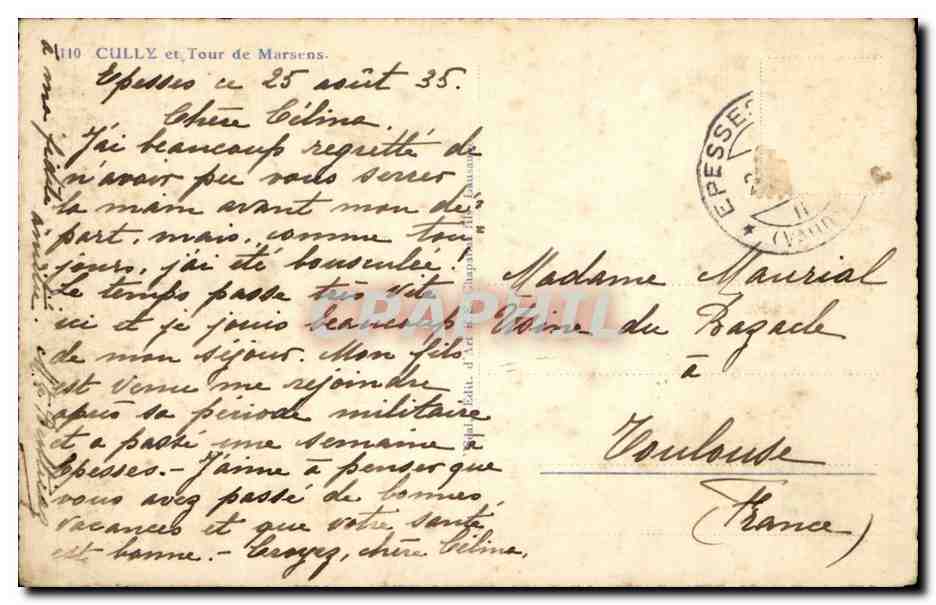 110 CULLY et Tour de Marsens.
Epesses ce 25 août 35.
Chère Célina,
J'ai beaucoup regretté de
n'avoir pu vous serrer
la main avant mon dé-
part, mais, comme tou
jours, j'ai été bousculée!
Le temps passe très vite
ici et je jouis beaucoup
de mon séjour. Mon fils
est venu me rejoindre
après sa période militaire
et a passé une semaine à
Epesses. - J'aime à penser que
vous avez passé de bonnes
vacances et que votre santé
est bonne. - Croyez, chère Célina,
à ma fidèle amitié.
Edit. d'Art Lausanne
EPESSES
(VAUD)
Madame Maurial
Usine du Bazacle
à
Toulouse
(France)
CPAPHIL